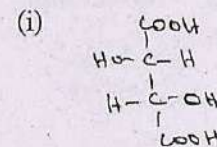 (i)
COOH
HO-C-H
H-C-OH
COOH